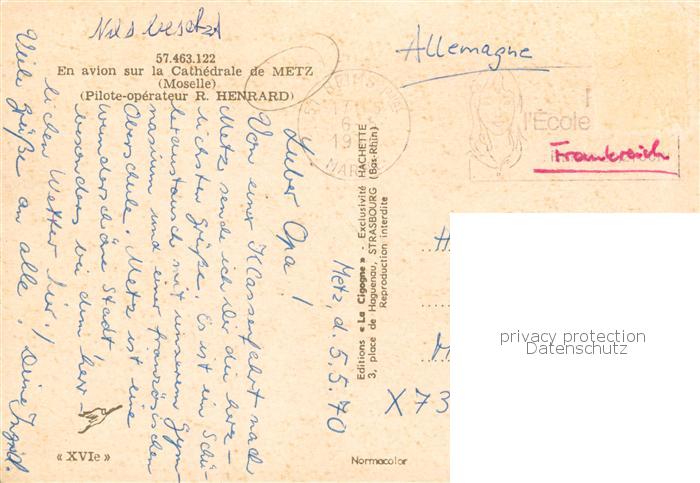 Nils besetzt
57.463.122
En avion sur la Cathédrale de METZ
(Moselle)
(Pilote-opérateur R. HENRARD)
Metz, d. 5.5.70
Lieber Opa!
Von einer Klassenfahrt nach
Metz sende ich Dir die herz-
lichsten Grüße. Es ist ein Schü-
leraustausch mit unserem Gym-
nasium und einer französischen
Oberschule. Metz ist eine
wunderschöne Stadt,
besonders bei dem herr-
lichen Wetter hier!
Viele Grüße an alle. Deine Ingrid.
« XVIe »
Editions « La Cigogne » - Exclusivité HACHETTE
3, place de Haguenau, STRASBOURG (Bas-Rhin)
Reproduction interdite
Normacolor
Allemagne
l'École
Frankreich
X 73
privacy protection
Datenschutz